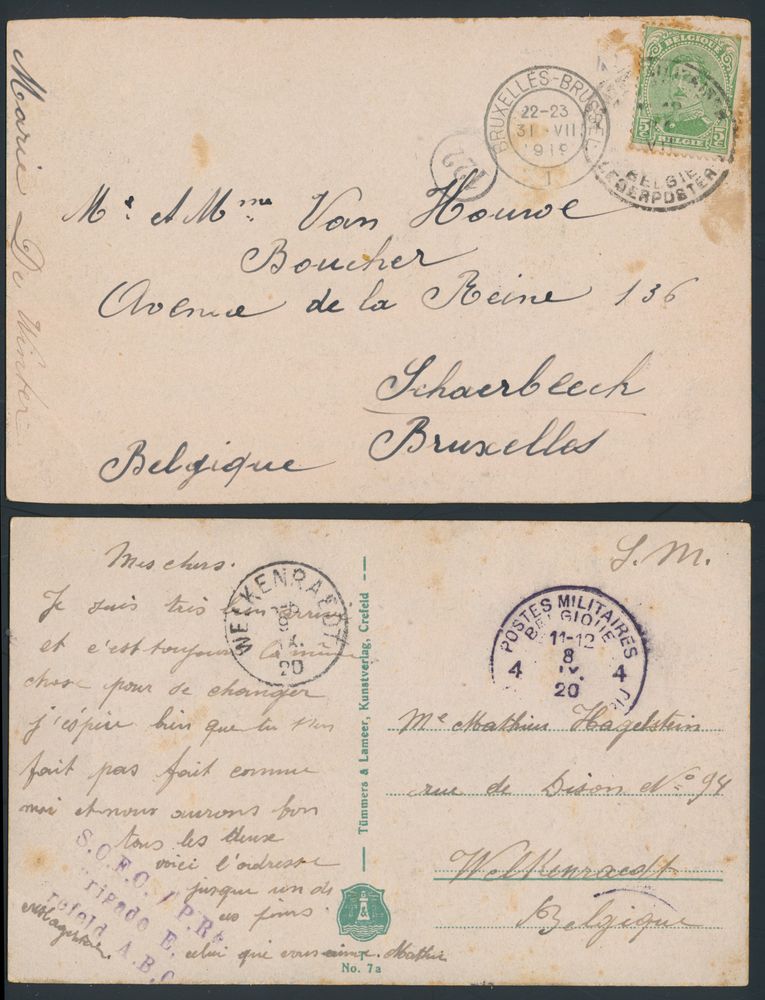 Marie De Winter
BRUXELLES-BRUSSEL
22-23
31 VII
1919
1
122
BELGIQUE
5c 5c
BELGIE
BELGIE
LEGERPOSTERIJ
Mr et Mme Van Houwe
Boucher
Avenue de la Reine 136
Schaerbeeck
Bruxelles
Belgique
Mes chers.
Je suis très bien arrivé
et c'est toujours la même
chose pour se changer
j'espère bien que tu t'en
fait pas fait comme
moi et nous aurons bon
tous les deux
voici l'adresse
jusque un de
ces jours.
celui qui vous aime. Mathieu
M Hagelstein
S.M.
WELKENRAEDT
8
IX.
20
POSTES MILITAIRES
BELGIQUE
11-12
4 8 4
IX.
20
Me Mathieu Hagelstein
rue de Dison No 94
Welkenraedt
Belgique
Tümmers & Lameer, Kunstverlag, Crefeld
No. 7a
rigade E.
refeld A.B.C